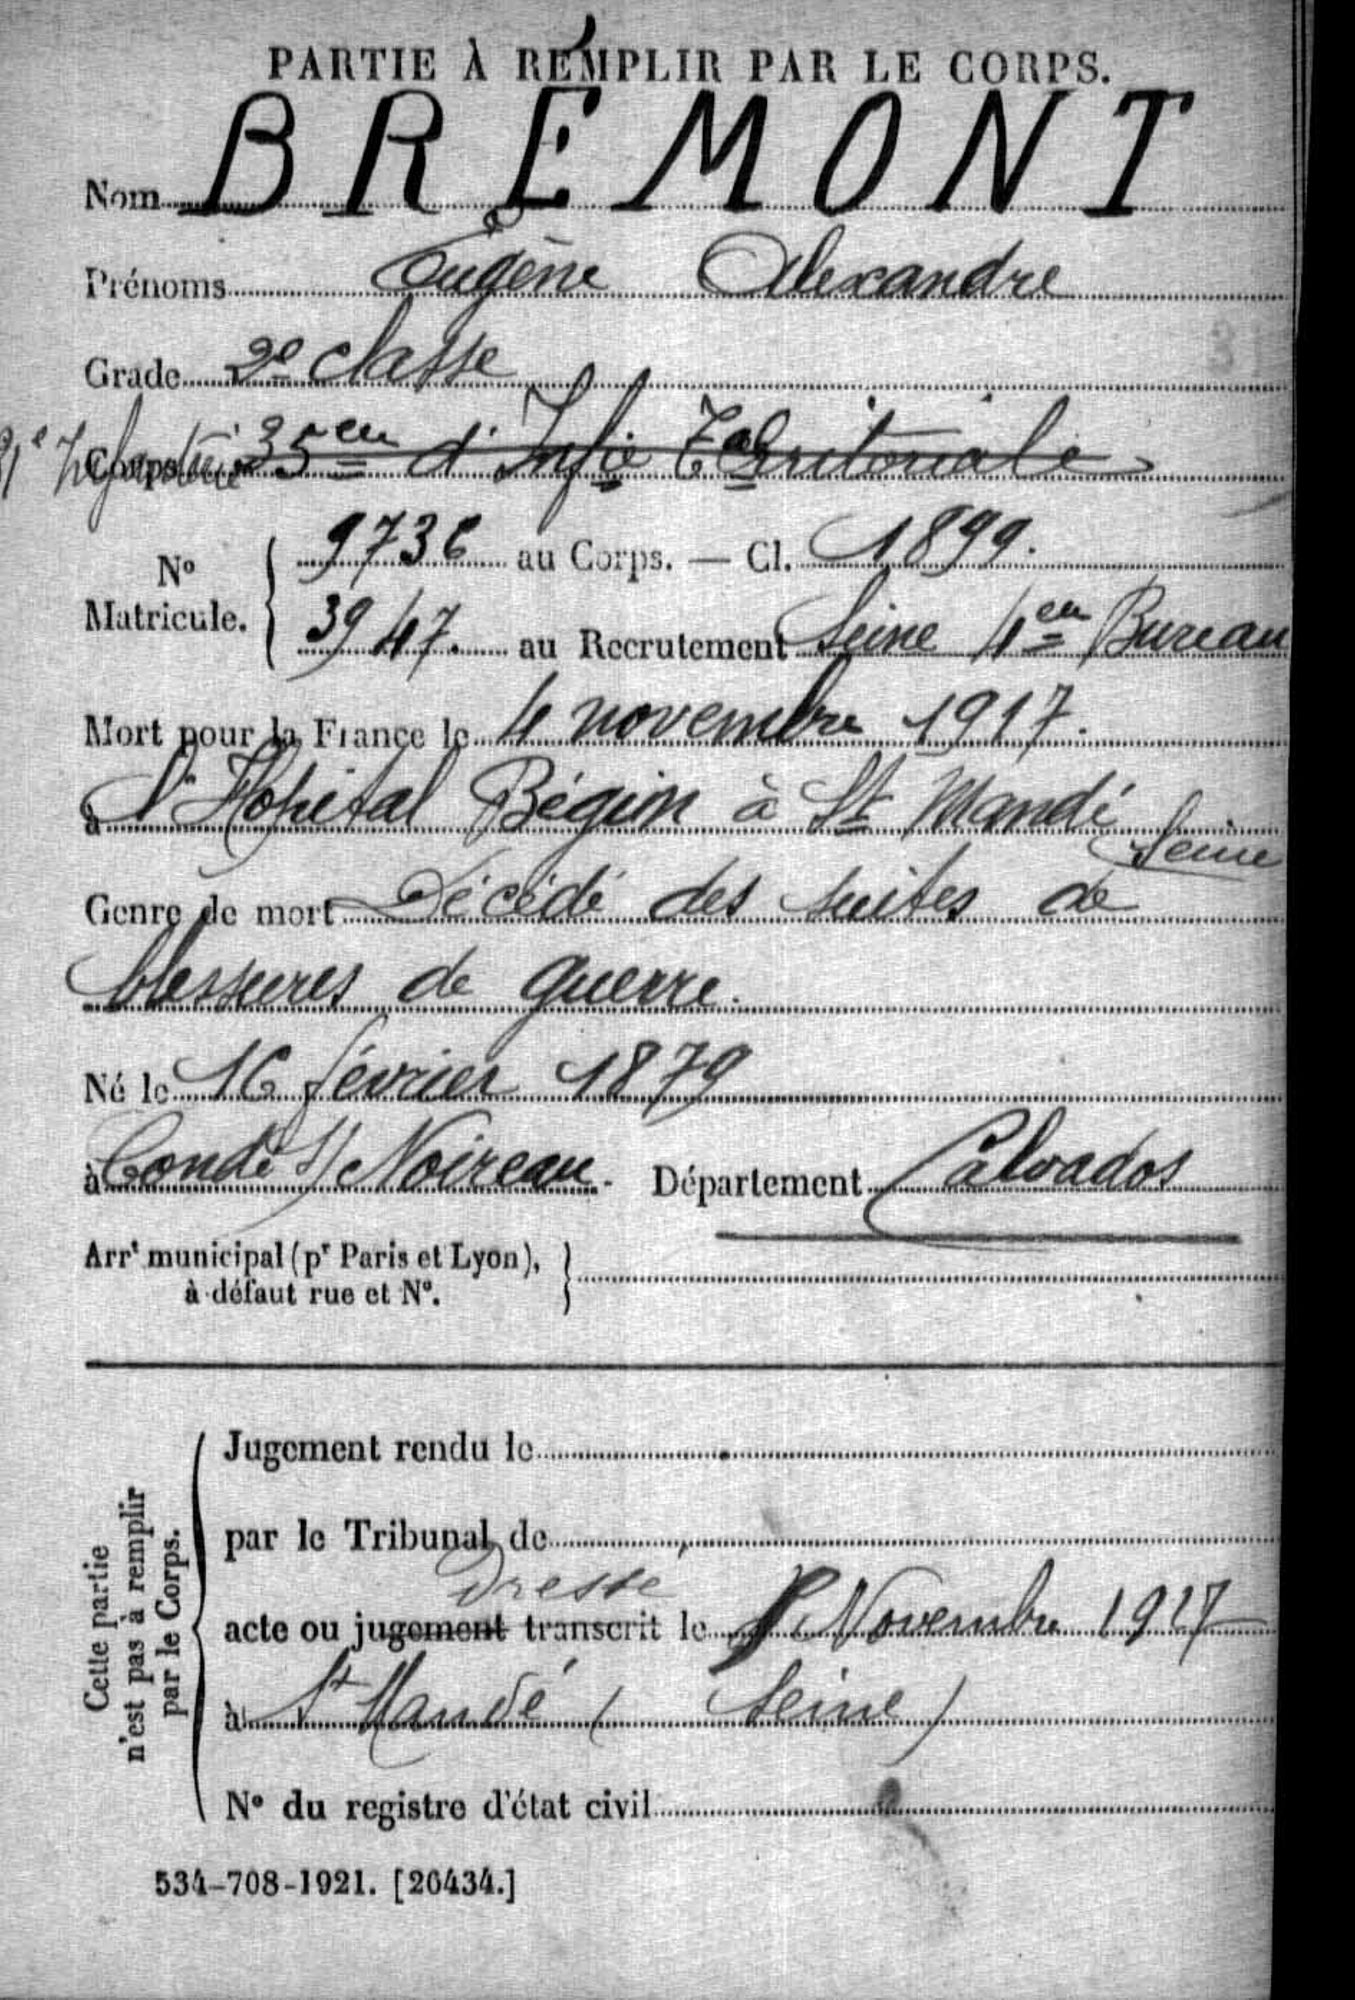 PARTIE À REMPLIR PAR LE CORPS.
Nom BRÉMONT
Prénoms Eugène Alexandre
Grade 2e classe
Corps 35em d'Infie Territoriale
Infanterie
No Matricule. 9736 au Corps. — Cl. 1899.
3947. au Recrutement Seine 4em Bureau
Mort pour la France le 4 novembre 1917.
à l'Hôpital Bégin à St Mandé Seine
Genre de mort Décédé des suites de
blessures de guerre.
Né le 16 février 1879
à Condé s/ Noireau. Département Calvados
Arrt municipal (pr Paris et Lyon),
à défaut rue et No.
Cette partie
n'est pas à remplir
par le Corps.
Jugement rendu le
par le Tribunal de
Dressé
acte ou jugement transcrit le Novembre 1917
à St Mandé (Seine)
No du registre d'état civil
534-708-1921. [26434.]